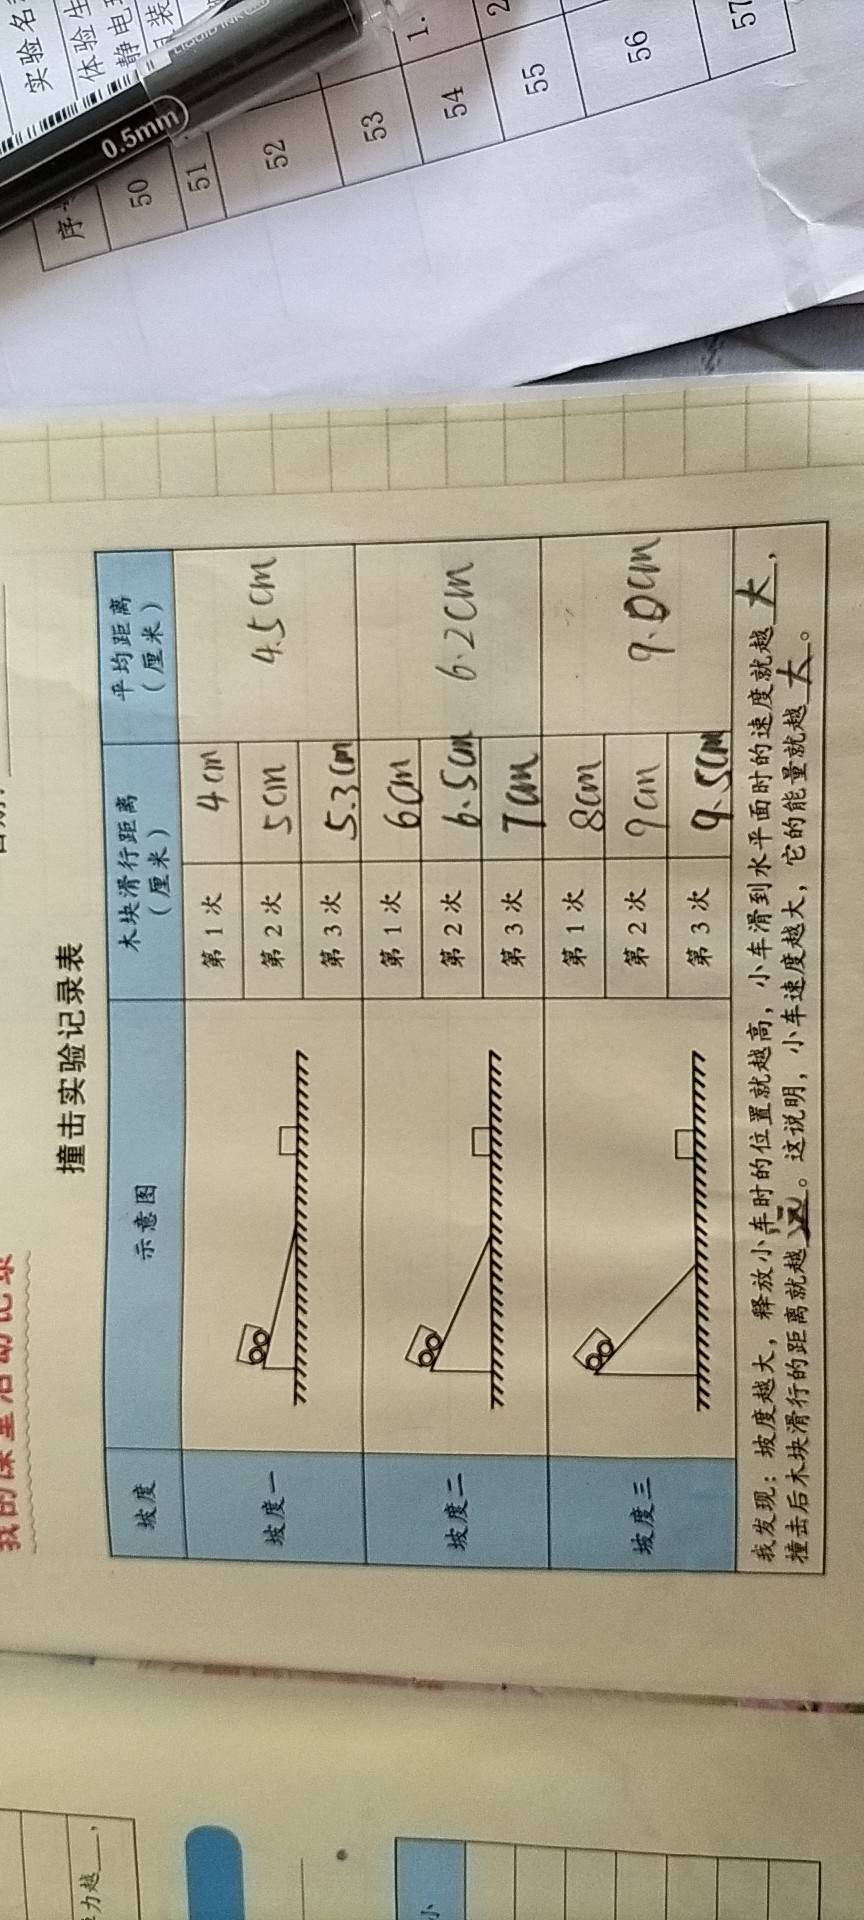 撞击实验记录表
坡度 示意图 木块滑行距离（厘米） 平均距离（厘米）
坡度一 第1次 4cm 4.5cm
第2次 5cm
第3次 5.3cm
坡度二 第1次 6cm 6.2cm
第2次 6.5cm
第3次 7cm
坡度三 第1次 8cm 9.0cm
第2次 9cm
第3次 9.5cm
我发现：坡度越大，释放小车时的位置就越高，小车滑到水平面时的速度就越大，
撞击后木块滑行的距离就越远。这说明，小车速度越大，它的能量就越大。
力越，
小
实验名
体验生
静电
装
0.5mm
LIQUID INK
序
50
51
52
53 1.
54
55 2
56
57